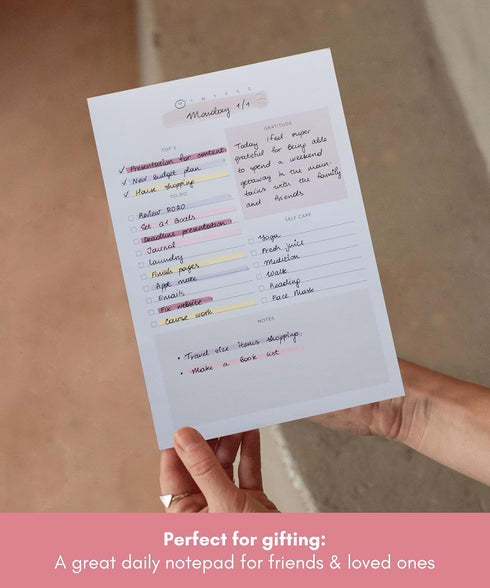 M T W T F S S
Monday 1/1
TOP 3
Presentation for content
New budget plan
House shopping
TO DO
Review 2020
Set Q1 Goals
Deadline presentation
Journal
Laundry
Finish pages
Appt make
Emails
Fix website
Course work
GRATITUDE
Today I feel super
grateful for being able
to spend a weekend
getaway in the moun-
tains with the family
and friends
SELF CARE
Yoga
Fresh juice
Medition
Walk
Reading
Face Mask
NOTES
• Travel size items shopping
• Make a Book list
Perfect for gifting:
A great daily notepad for friends & loved ones